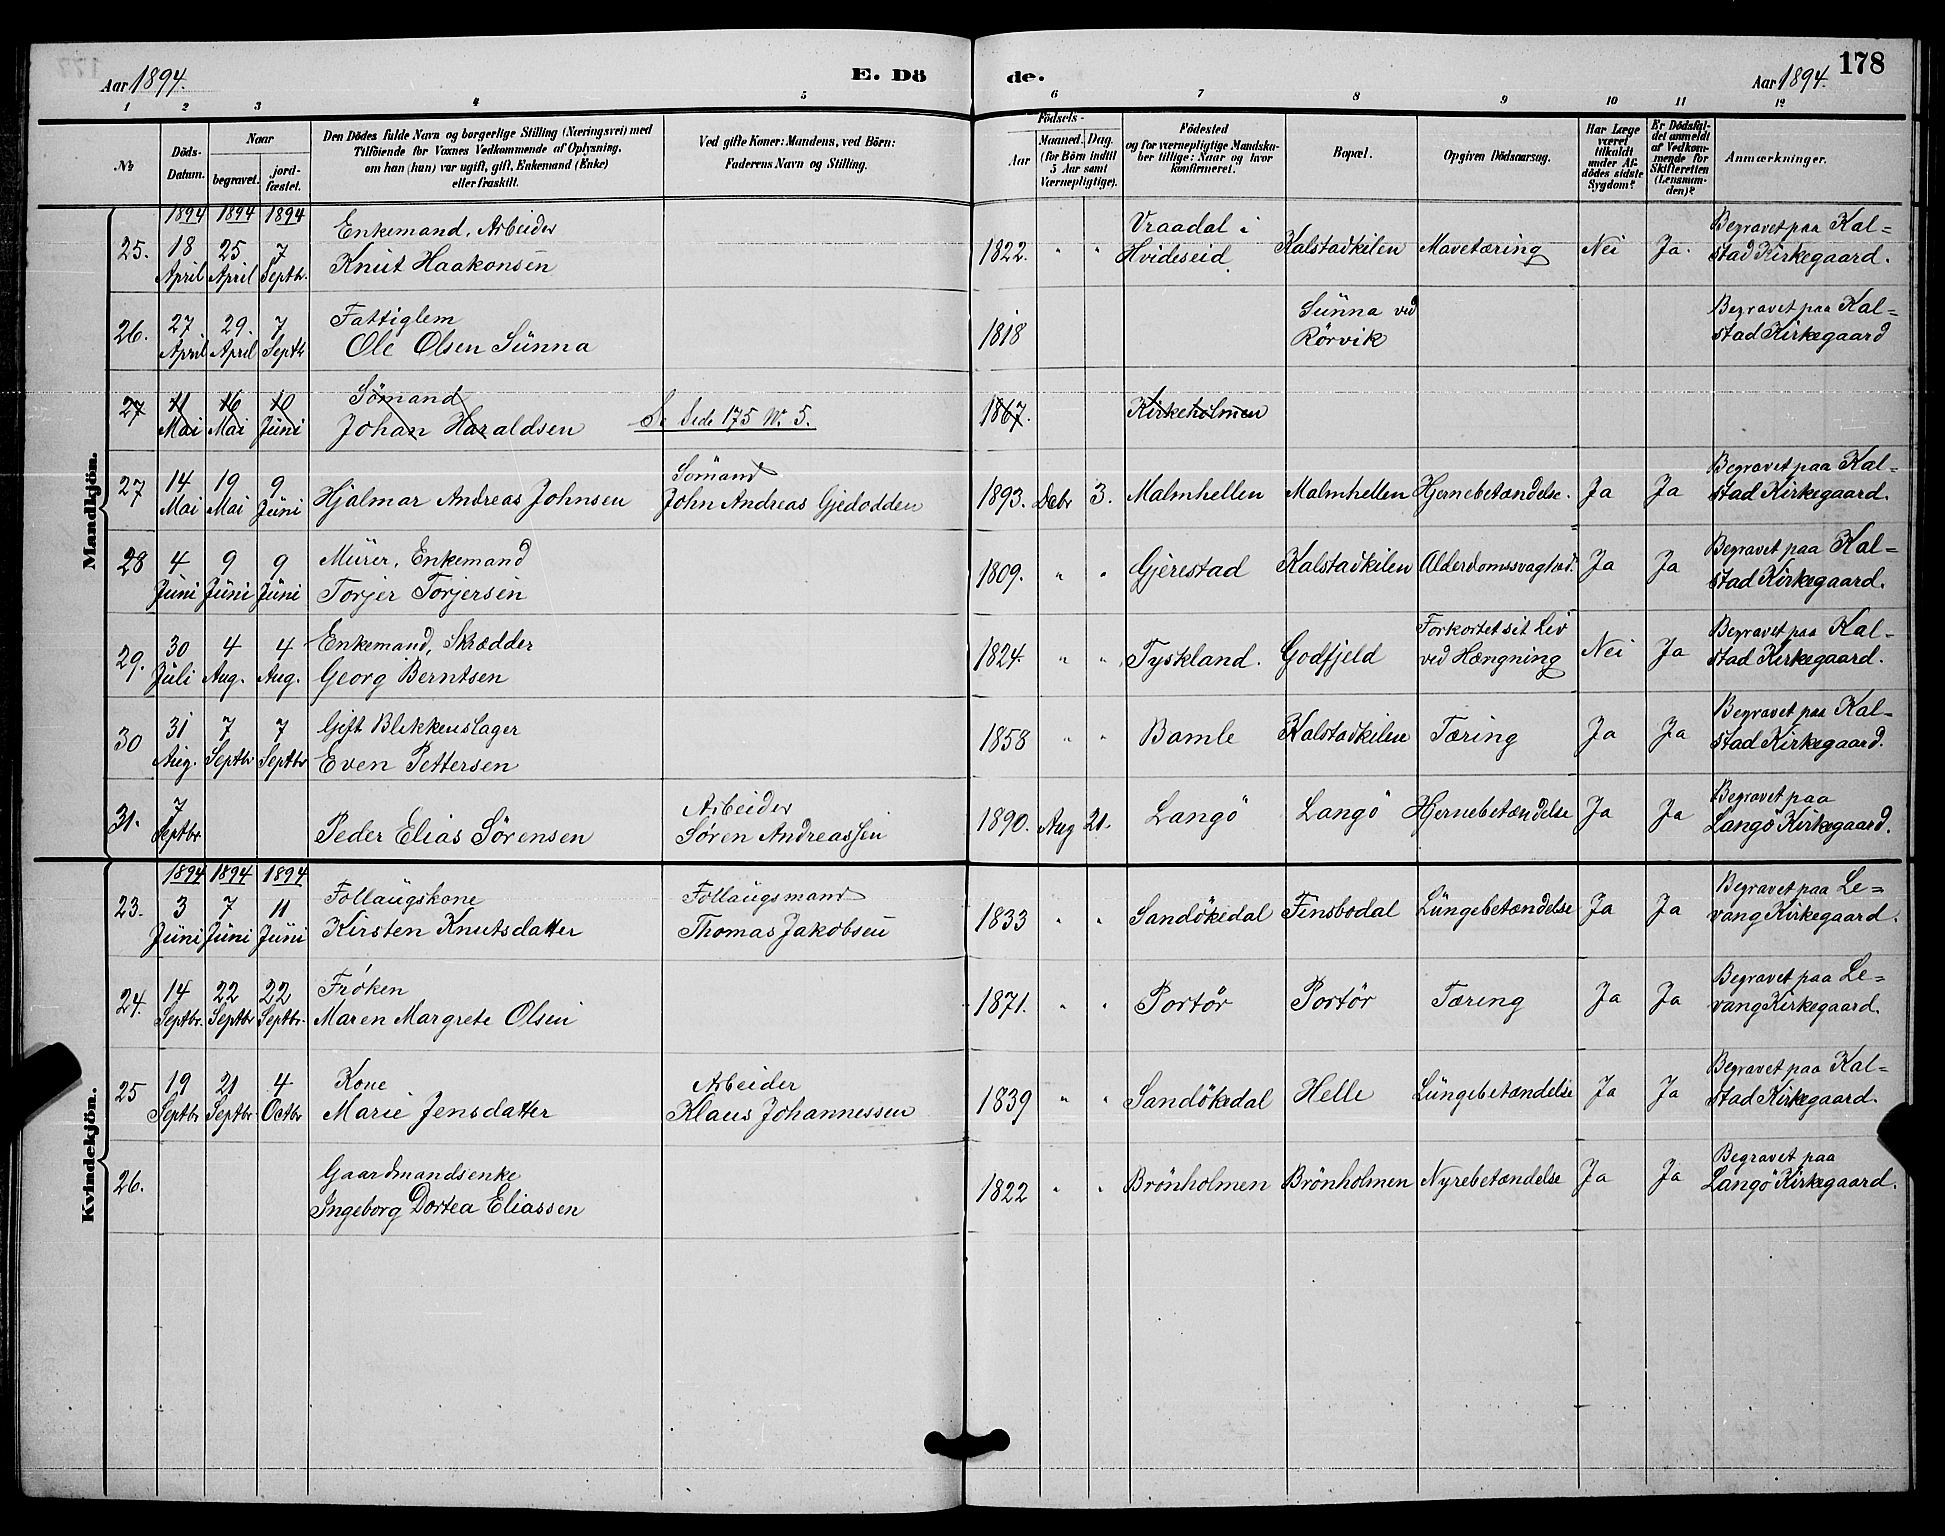 Aar 1894.
E. Dö
de.
Aar 1894.
178
1 2 3 4 5 6 7 8 9 10 11 12
№
Döds-Datum.
Naar
begravet.
jord-fæstet.
Den Dödes fulde Navn og borgerlige Stilling (Næringsvei) med
Tilföiende for Voxnes Vedkommende af Oplysning,
om han (hun) var ugift, gift, Enkemand (Enke)
eller fraskilt.
Ved gifte Koner: Mandens, ved Börn:
Faderens Navn og Stilling.
Födsels-
Aar
Maaned. Dag.
(for Börn indtil
5 Aar samt
Værnepligtige).
Födested
og for værnepligtige Mandska-
ber tillige: Naar og hvor
konfirmeret.
Bopæl.
Opgiven Dödsaarsag.
Har Læge
været
tilkaldt
under Af-
dödes sidste
Sygdom?
Er Dödsfal-
det anmeldt
af Vedkom-
mende for
Skifteretten
(Lensman-
den)?
Anmærkninger.
Mandkjön.
1894 1894 1894
25. 18 April 25 April 7 Septb. Enkemand, Arbeider
Knut Haakonsen
1822. " " Vraadal i
Hvideseid Kalstadkilen Mavetæring Nei Ja. Begravet paa Kal=
stad Kirkegaard.
26. 27 April 29. April 7 Septb Fattiglem
Ole Olsen Sunna
1818 Sunna ved
Rörvik Begravet paa Kal=
stad Kirkegaard
27 11 Mai 16 Mai 10 Juni Sömand
Johan Haraldsen Se Side 175 N. 5.
1867. Kirkeholmen
27 14 Mai 19 Mai 9 Juni Hjalmar Andreas Johnsen Sömand
John Andreas Gjedodden
1893. Decbr 3. Malmhellen Malmhellen Hjernebetændelse. Ja Ja Begravet paa Kal=
stad Kirkegaard.
28 4 Juni 9 Juni 9 Juni Murer, Enkemand
Torjer Torjersen
1809. " " Gjerestad Kalstadkilen Alderdomssvaghed. Ja Ja Begravet paa Kal=
stad Kirkegaard.
29. 30 Juli 4 Aug. 4 Aug. Enkemand, Skrædder
Georg Berntsen
1824. " " Tyskland. Godfjeld Forkortet sit Liv
ved Hængning Nei Ja Begravet paa Kal-
stad Kirkegaard.
30 31 Aug. 7 Septbr 7 Septbr Gift Blikkenslager
Even Pettersen
1858 " " Bamle Kalstadkilen Tæring Ja Ja Begravet paa Kal-
stad Kirkegaard.
31. 7 Septbr. Peder Elias Sörensen Arbeider
Sören Andreassen
1890. Aug 21. Langö Langö Hjernebetændelse Ja Ja Begravet paa
Langö Kirkegaard.
Kvindekjön.
1894 1894 1894
23. 3 Juni 7 Juni 11 Juni Follaugskone
Kirsten Knutsdatter Follaugsmand
Thomas Jakobsen
1833 " " Sandökedal Finsbodal Lungebetændelse Ja Ja Begravet paa Le=
vang Kirkegaard.
24. 14 Septbr. 22 Septbr 22 Septbr. Fröken
Maren Margrete Olsen
1871. " " Portör Portör Tæring Ja Ja Begravet paa Le=
vang Kirkegaard.
25 19 Septbr 21 Septbr 4 Octbr Kone
Marie Jensdatter Arbeider
Klaus Johannessen
1839 " " Sandökedal Helle Lungebetændelse Ja Ja Begravet paa Kal=
stad Kirkegaard.
26. Gaardmandsenke
Ingeborg Dortea Eliassen
1822 " " Brönholmen Brönholmen Nyrebetændelse Ja Ja Begravet paa
Langö Kirkegaard.